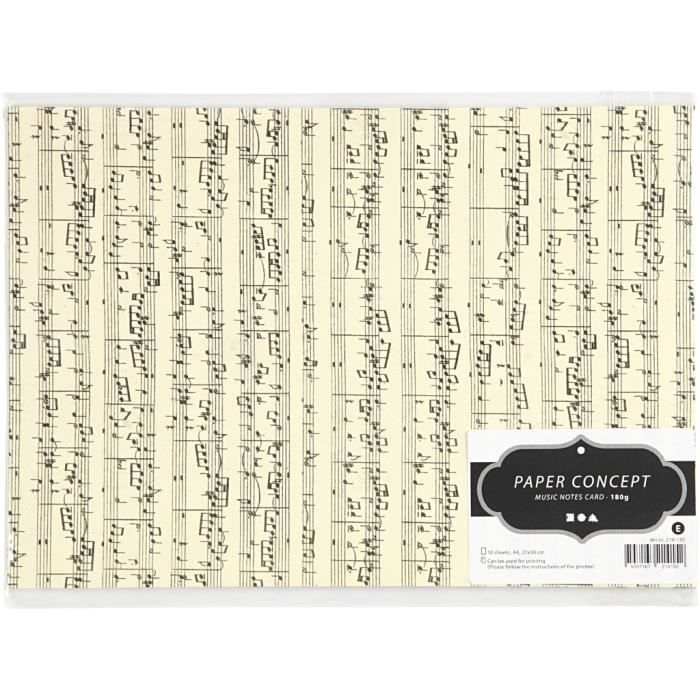 PAPER CONCEPT
MUSIC NOTES CARD · 180g
E
Art.nr. 219130
10 sheets, A4, 21x30 cm
Can be used for printing
(Please follow the instructions of the printer)